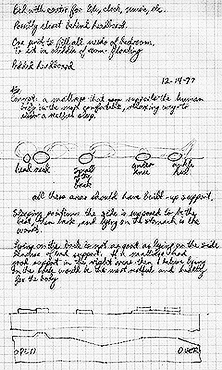 Bed with center for lite, clock, music, etc.
Possibly closet behind headboard.
One put to fill all needs of bedroom.
To sit in middle of room floating
Padded headboard
12-14-97
Concept: a mattress that supports the human
body in the most comfortable, relaxing way to
a restless sleep.
head neck small of the back under knee ankle heel
all these areas should have built-up support.
Sleeping positions the side is supposed to be the
best, then back, and lying on the stomach is the
worst.
Lying on the back is not as good as lying on the side
because of support. If a mattress had
good support in the right areas then I believe lying
on the back would be the most restful and healthy
for the body
OPEN OVER